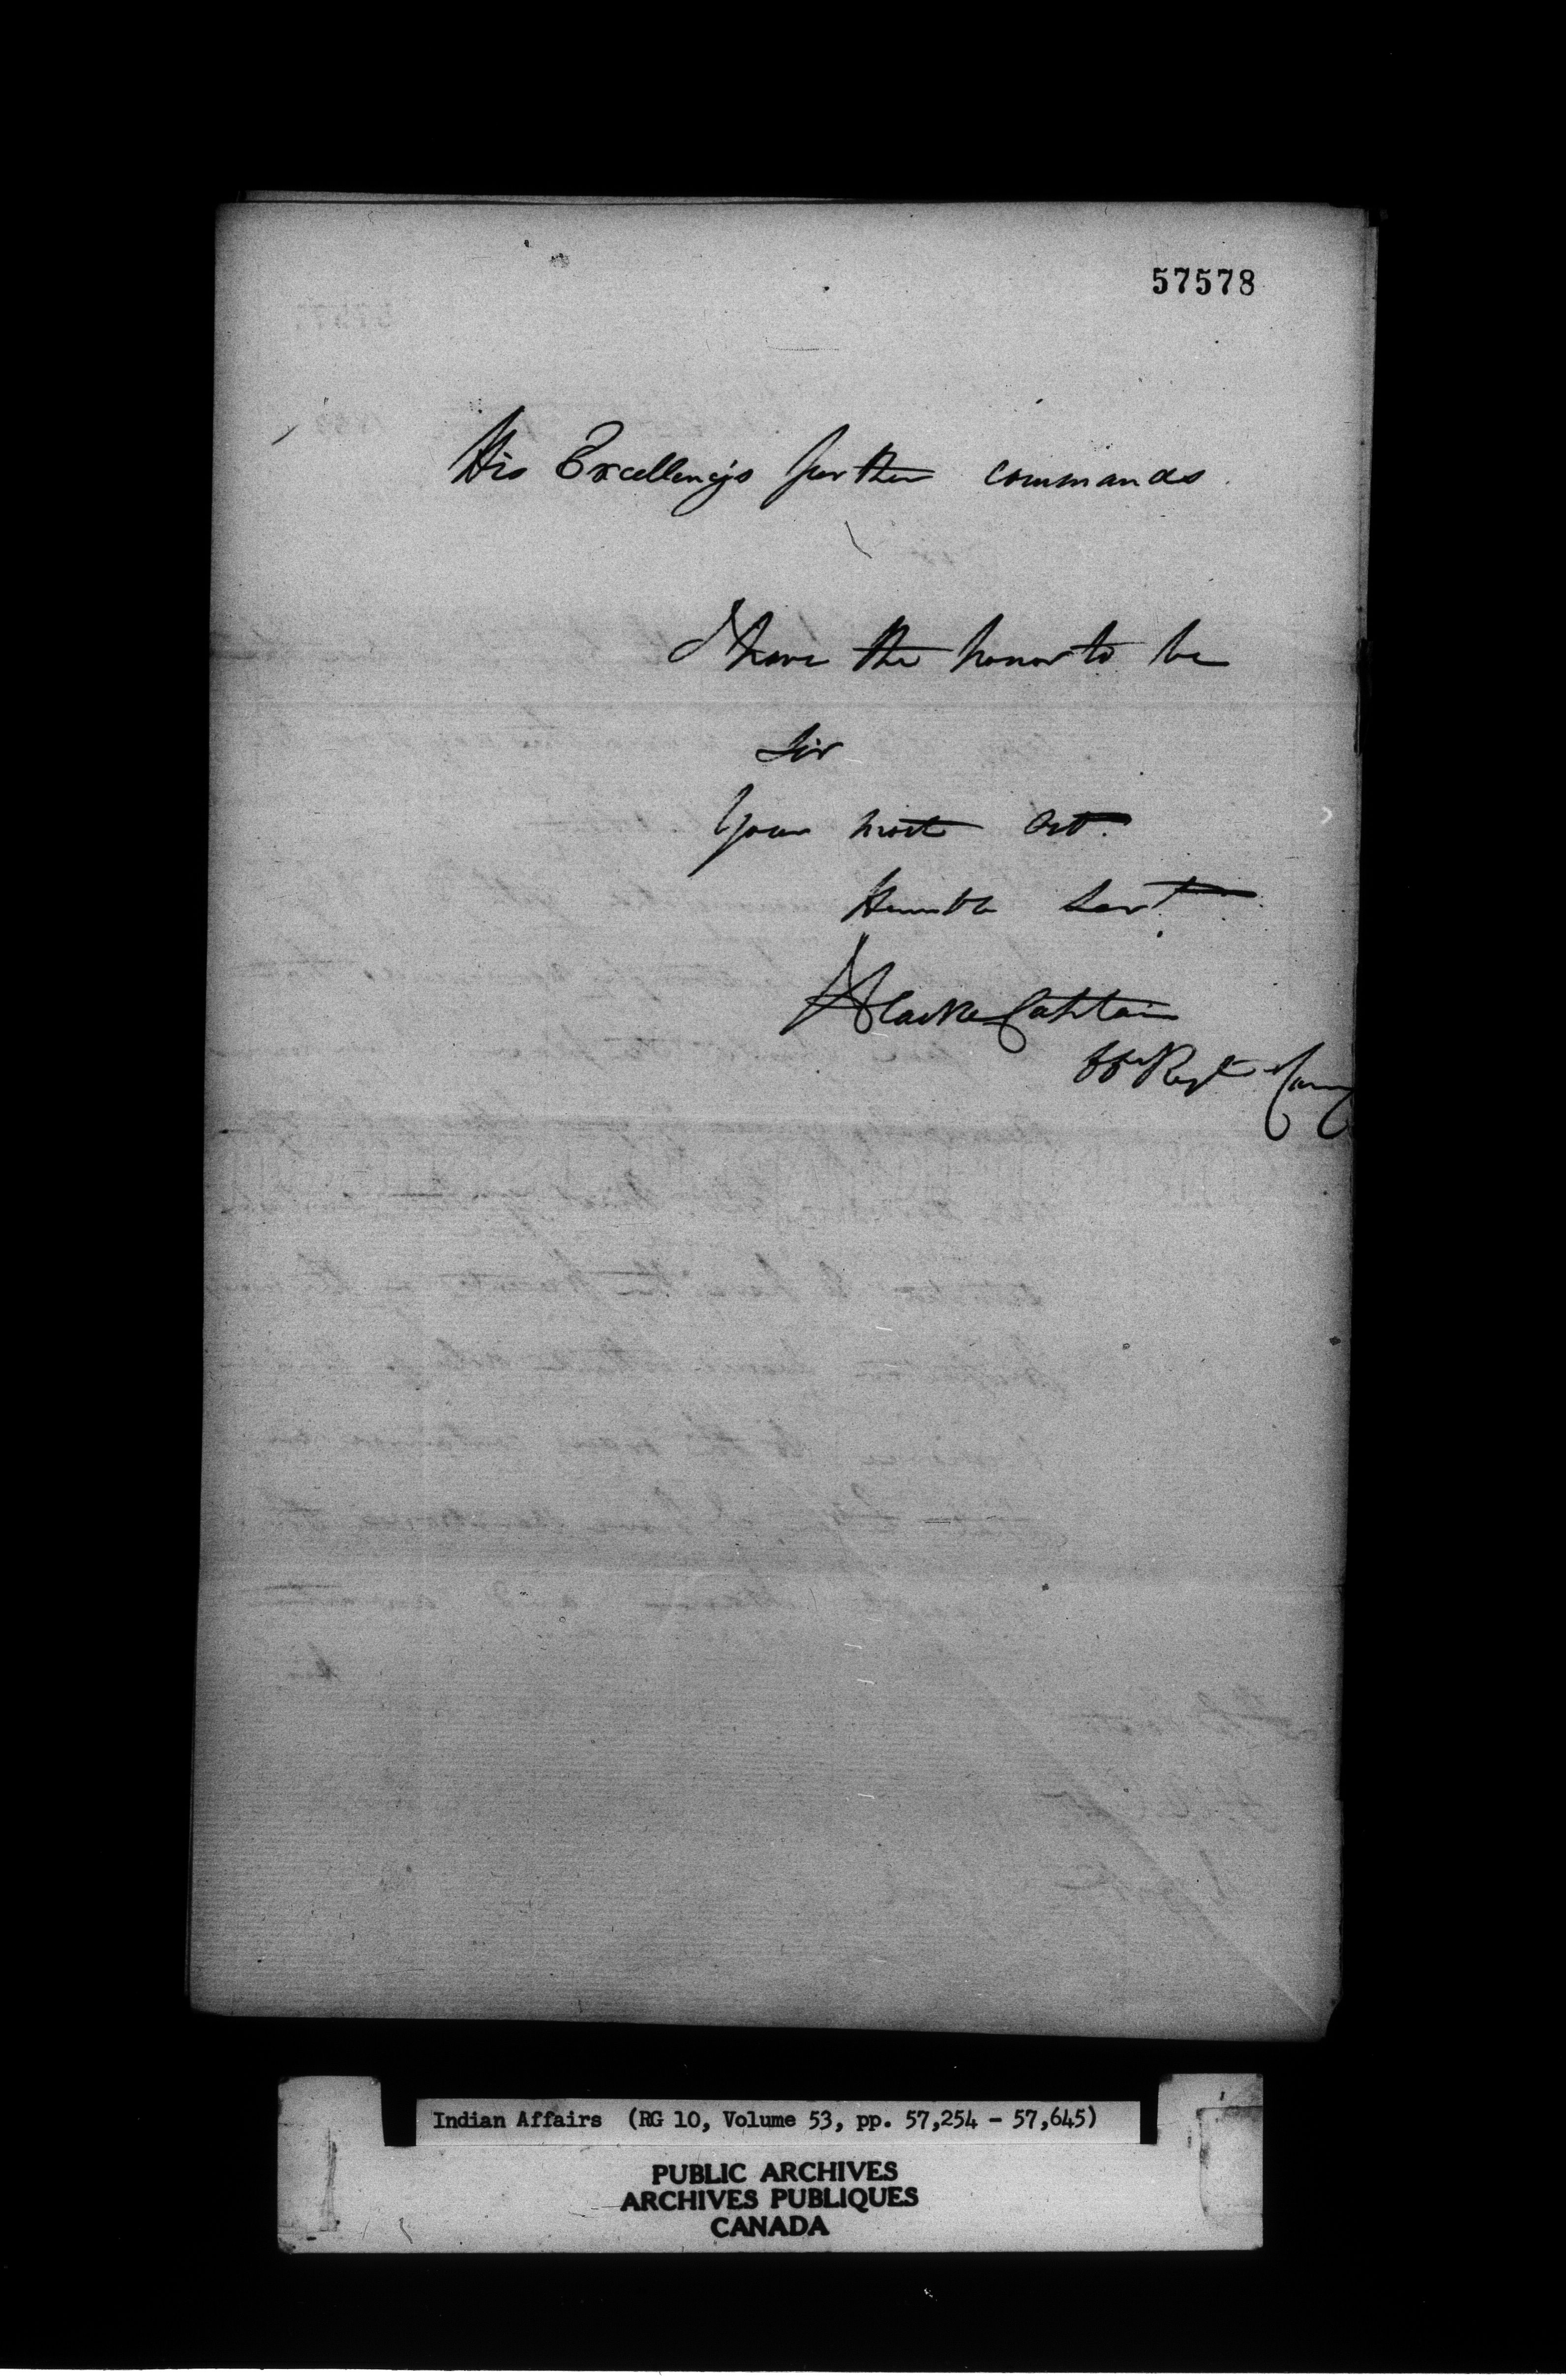 57578
His Excellency's further commands
I have the honor to be
Sir
Your most Obt.
Humble Servt.
Captain
66 Regt Comg
Indian Affairs (RG 10, Volume 53, pp. 57,254 - 57,645)
PUBLIC ARCHIVES
ARCHIVES PUBLIQUES
CANADA